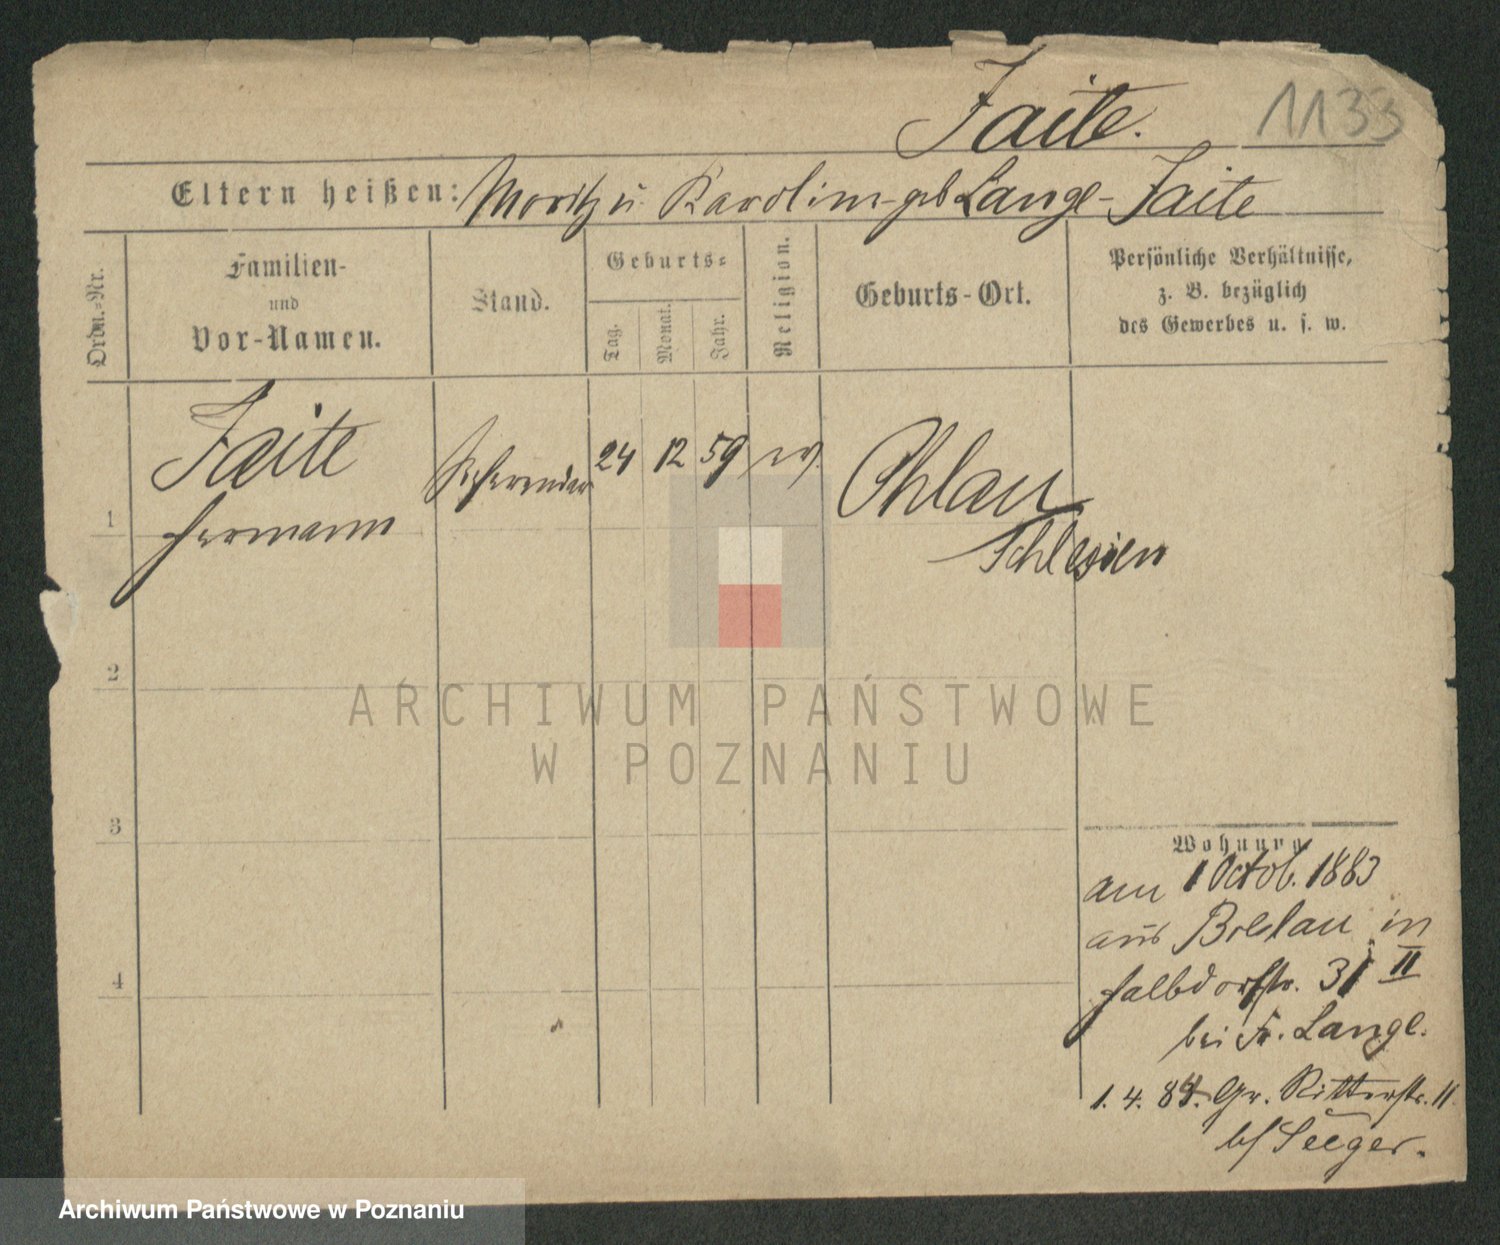 Jaite.
1133
Eltern heißen: Moritz u. Karoline geb Lange - Jaite
Ordn.-Nr.
Familien-
und
Vor-Namen.
Stand.
Geburts-
Tag.
Monat.
Jahr.
Religion.
Geburts-Ort.
Persönliche Verhältnisse,
z. B. bezüglich
des Gewerbes u. s. w.
1
Jaite
Hermann
Referendar
24
12
59
ev.
Ohlau
Schlesien
2
3
4
Wohnung
am 1 Octob. 1883
aus Breslau in
Halbdorfstr. 31 II
bei Fr. Lange.
1. 4. 84. Gr. Ritterstr. 11
b/ Seeger.
ARCHIWUM PAŃSTWOWE
W POZNANIU
Archiwum Państwowe w Poznaniu